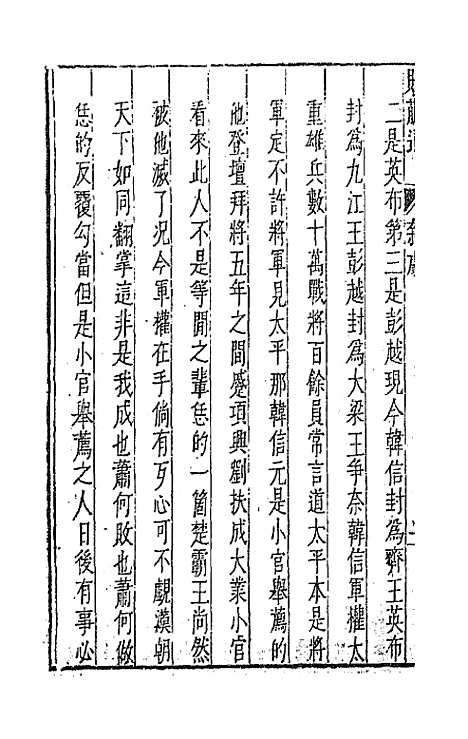 賺蒯通 雜劇
二是英布第三是彭越現今韓信封爲齊王英布
封爲九江王彭越封爲大梁王爭奈韓信軍權太
重雄兵數十萬戰將百餘員常言道太平本是將
軍定不許將軍見太平那韓信元是小官舉薦的
他登壇拜將五年之間蹙項興劉扶成大業小官
看來此人不是等閒之輩恁的一箇楚霸王尚然
被他滅了況今軍權在手倘有歹心可不覷漢朝
天下如同翻掌這非是我成也蕭何敗也蕭何做
恁的反覆勾當但是小官舉薦之人日後有事必